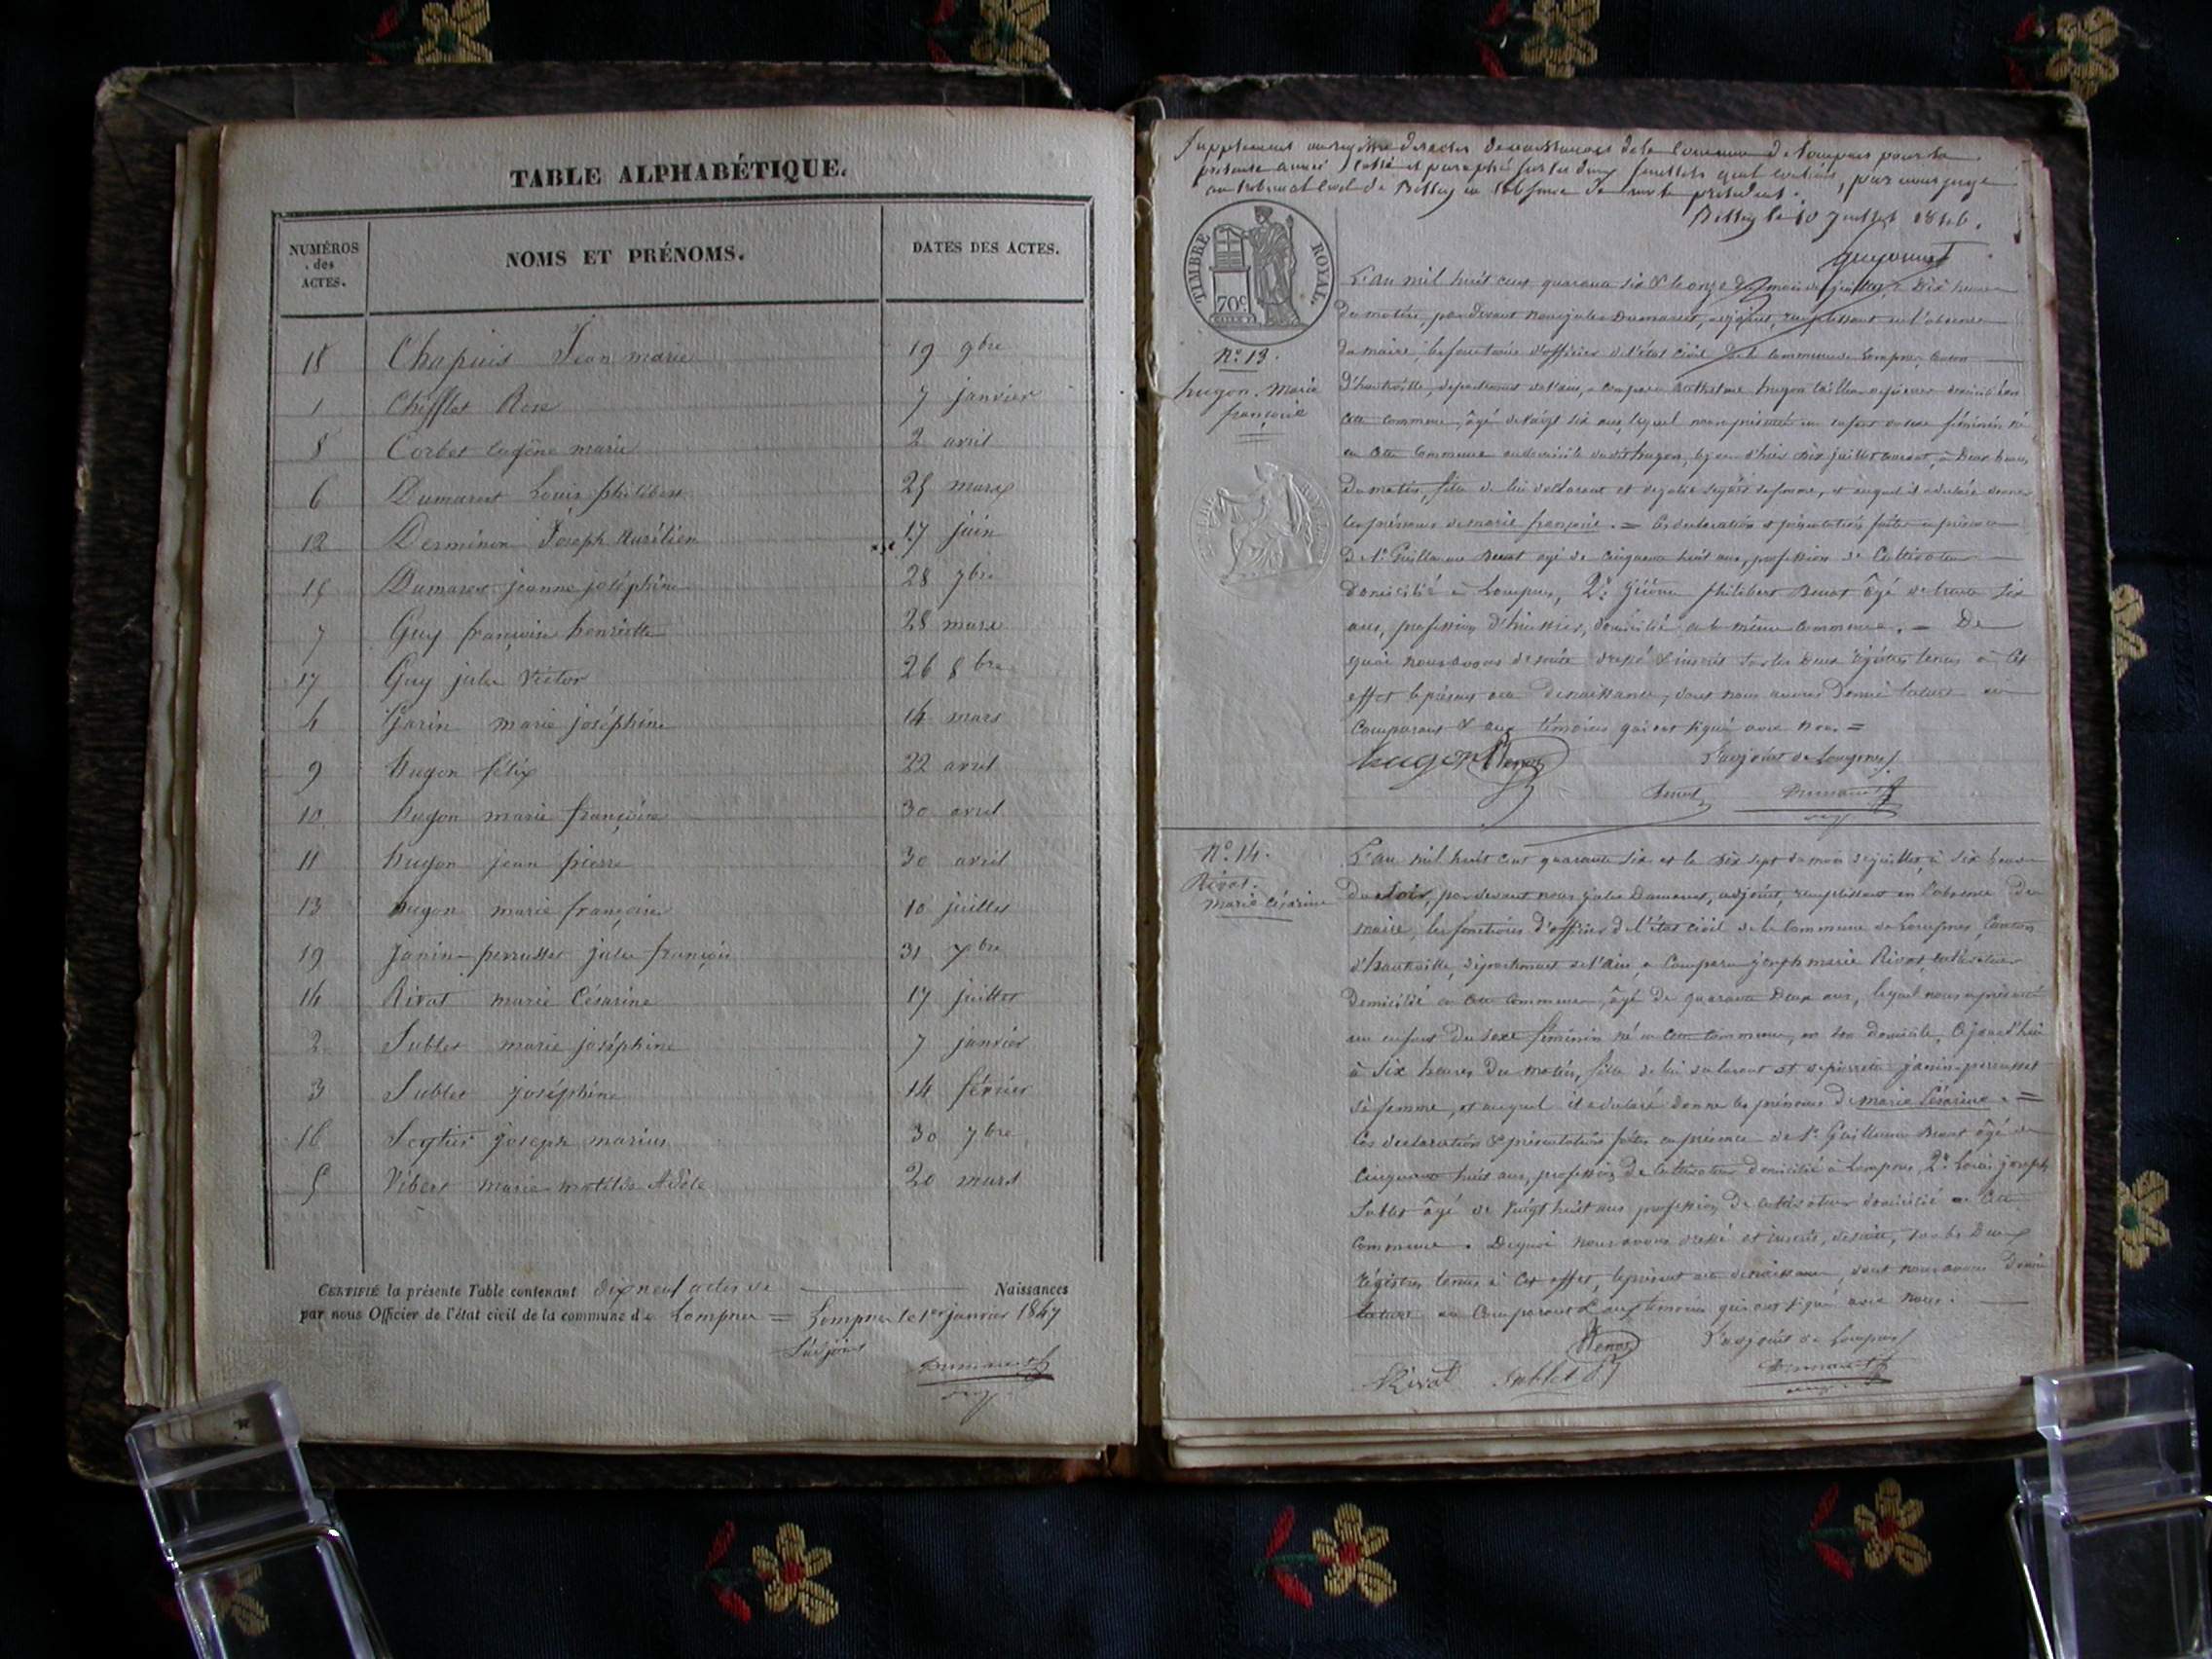 TABLE ALPHABÉTIQUE.
NUMÉROS des ACTES. NOMS ET PRÉNOMS. DATES DES ACTES.
18 Chapuis Jean marie 19 9bre
1 Chifflet Rose 7 janvier
8 Corbet Eugène marie 2 avril
6 Dumarest Louis philibert 25 mars
12 Derminon Joseph Aurélien 17 juin
15 Dumarest jeanne joséphine 28 7bre
7 Guy françoise henriette 28 mars
17 Guy jules Victor 26 8bre
4 Garin marie joséphine 14 mars
9 hugon félix 22 avril
10 hugon marie françoise 30 avril
11 hugon jean pierre 30 avril
13 hugon marie françoise 10 juillet
19 Janin-perrusset jules françois 31 xbre
14 Rivat marie Césarine 17 juillet
2 Sublet marie joséphine 7 janvier
3 Sublet joséphine 14 février
16 joseph marius 30 7bre
5 Vibert marie matilde Adèle 20 mars
CERTIFIÉ la présente Table contenant dix neuf actes de Naissances
par nous Officier de l'état civil de la commune de Lompnes = Lompnes le 1er janvier 1847
L'adjoint
Dumarest
Supplément au registre des actes de naissances de la commune de Lompnes pour la
présente année, coté et paraphé sur les deux feuillets par nous juge
au tribunal civil de Belley en l'absence de le président.
Belley le 10 juillet 1846.
TIMBRE ROYAL.
70c
No 13.
hugon. Marie
françoise
L'an mil huit cent quarante six & le onze du mois de juillet, à Dix heures
Du matin, par devant nous jules Dumarest, adjoint, remplissant en l'absence
du maire, les fonctions d'officier de l'état civil de la commune de Lompnes, Canton
d'hauteville, département de l'ain, a comparu Anthelme hugon domicilié en
cette commune, âgé de vingt six ans, lequel nous a présenté un enfant du sexe féminin né
en cette commune au domicile dudit hugon, le jour d'hier dix juillet courant, à Deux heures
Du matin, fille de lui déclarant et de sa femme, et auquel il a déclaré donner
les prénoms de marie françoise. = Ces déclaration & présentation faites en présence
De 1o Guillaume Benat âgé de cinquante huit ans, profession de Cultivateur
Domicilié à Lompnes, 2o philibert Benat âgé de trente six
ans, profession d'huissier, domicilié en la même Commune. — De
quoi nous avons de suite dressé & inscrit sur les Deux Registres tenus à cet
effet le présent acte de naissance, dont nous avons Donné lecture au
Comparant & aux témoins qui ont signé avec nous. =
hugon
L'adjoint de Lompnes
Dumarest
No 14.
Rivat.
Marie Césarine
L'an mil huit cent quarante six et le Dix sept du mois de juillet, à Six heures
du Soir, par devant nous jules Dumarest, adjoint, remplissant en l'absence du
maire, les fonctions d'officier de l'état civil de la Commune de Lompnes, Canton
d'hauteville, département de l'ain a comparu joseph marie Rivat, cultivateur
Domicilié en cette Commune, âgé de quarante Deux ans, lequel nous a présenté
un enfant du sexe féminin né en cette commune, en son domicile, Cejourd'hui
à Six heures Du matin, fille de lui déclarant et de pierrette janin-perrusset
sa femme, et auquel il a déclaré donner les prénoms de marie Césarine. =
Ces déclaration & présentation faites en présence de 1o Guillaume Benat âgé de
Cinquante huit ans, profession De Cultivateur domicilié à Lompnes, 2o Louis joseph
Sublet âgé de Vingt huit ans profession De cultivateur domicilié en cette
Commune. De quoi nous avons dressé et inscrit, de suite, sur les Deux
Registres tenus à cet effet, le présent acte de naissance, dont nous avons Donné
lecture au Comparant & aux témoins qui ont signé avec nous.
L'adjoint de Lompnes
Rivat Sublet Dumarest